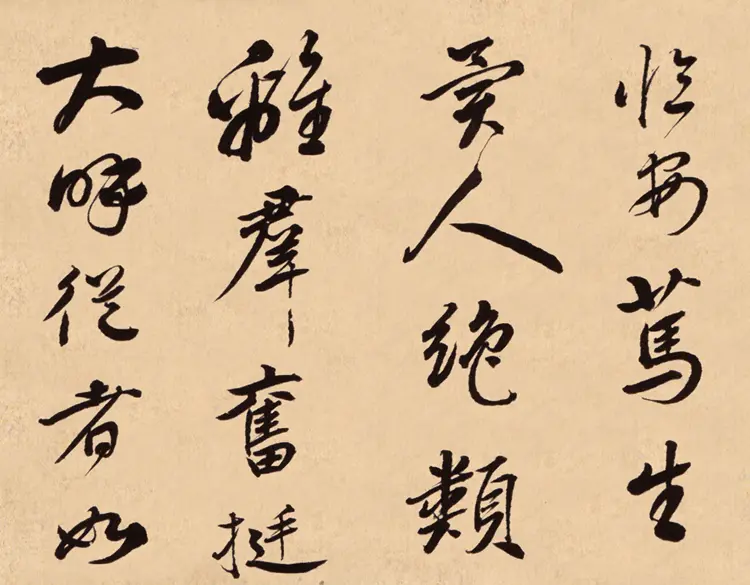 臨安篤生
異人絶類
離羣奮挺
大呼從者如